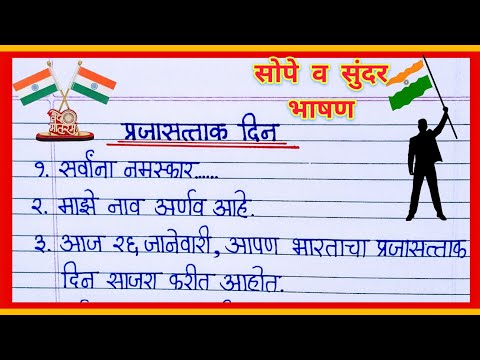 सोपे व सुंदर
भाषण
वंदे
मातरम्
प्रजासत्ताक दिन
१. सर्वांना नमस्कार......
२. माझे नाव अर्णव आहे.
३. आज २६ जानेवारी, आपण भारताचा प्रजासत्ताक
दिन साजरा करीत आहोत.